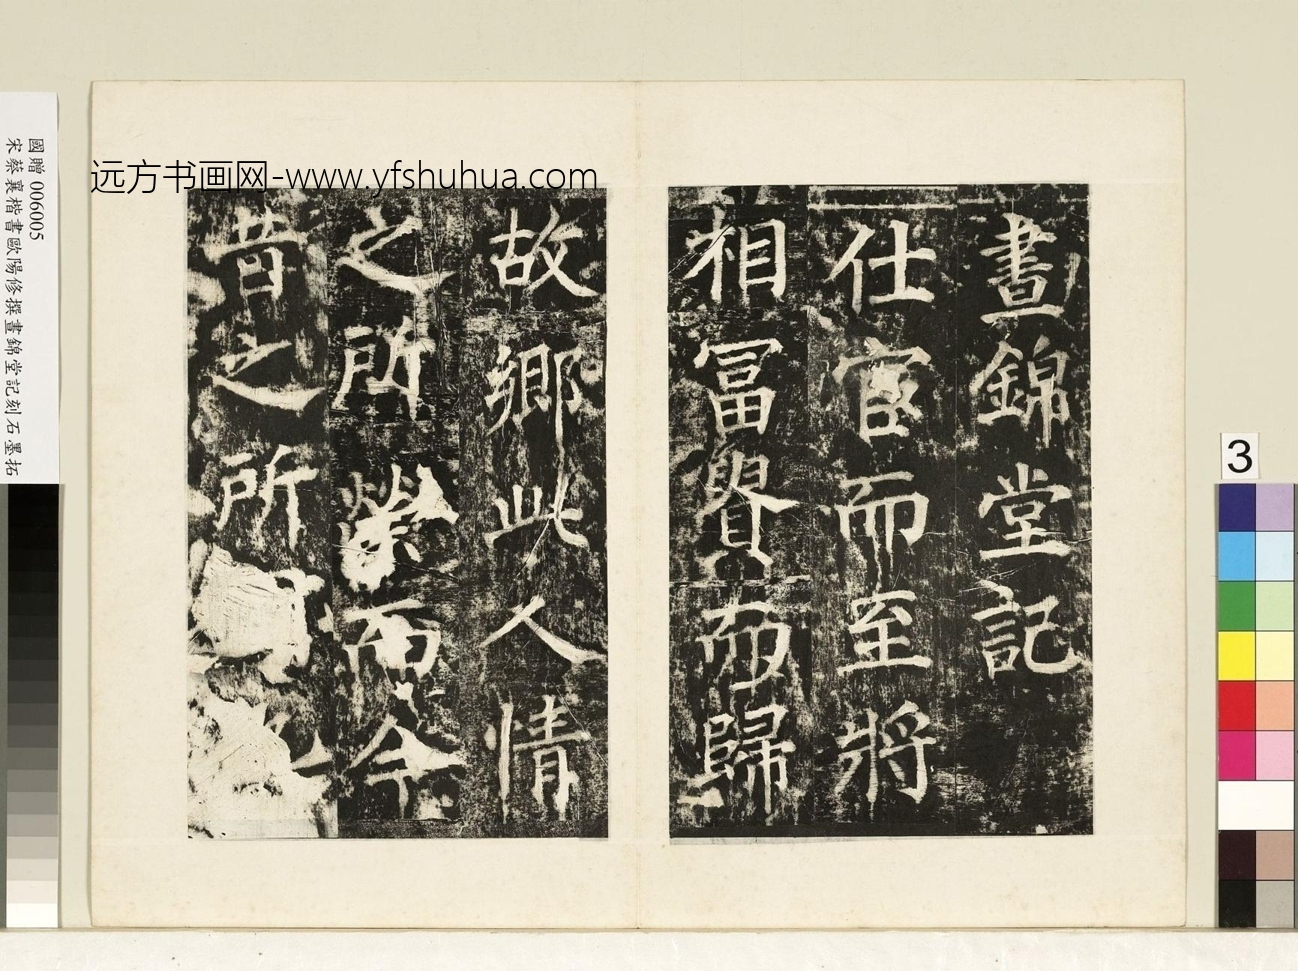 國贈 006005
宋蔡襄楷書歐陽修撰晝錦堂記刻石墨拓
远方书画网-www.yfshuhua.com
晝錦堂記
仕宦而至將
相冨貴而歸
故鄉此人情
之所榮而今
昔之所
3